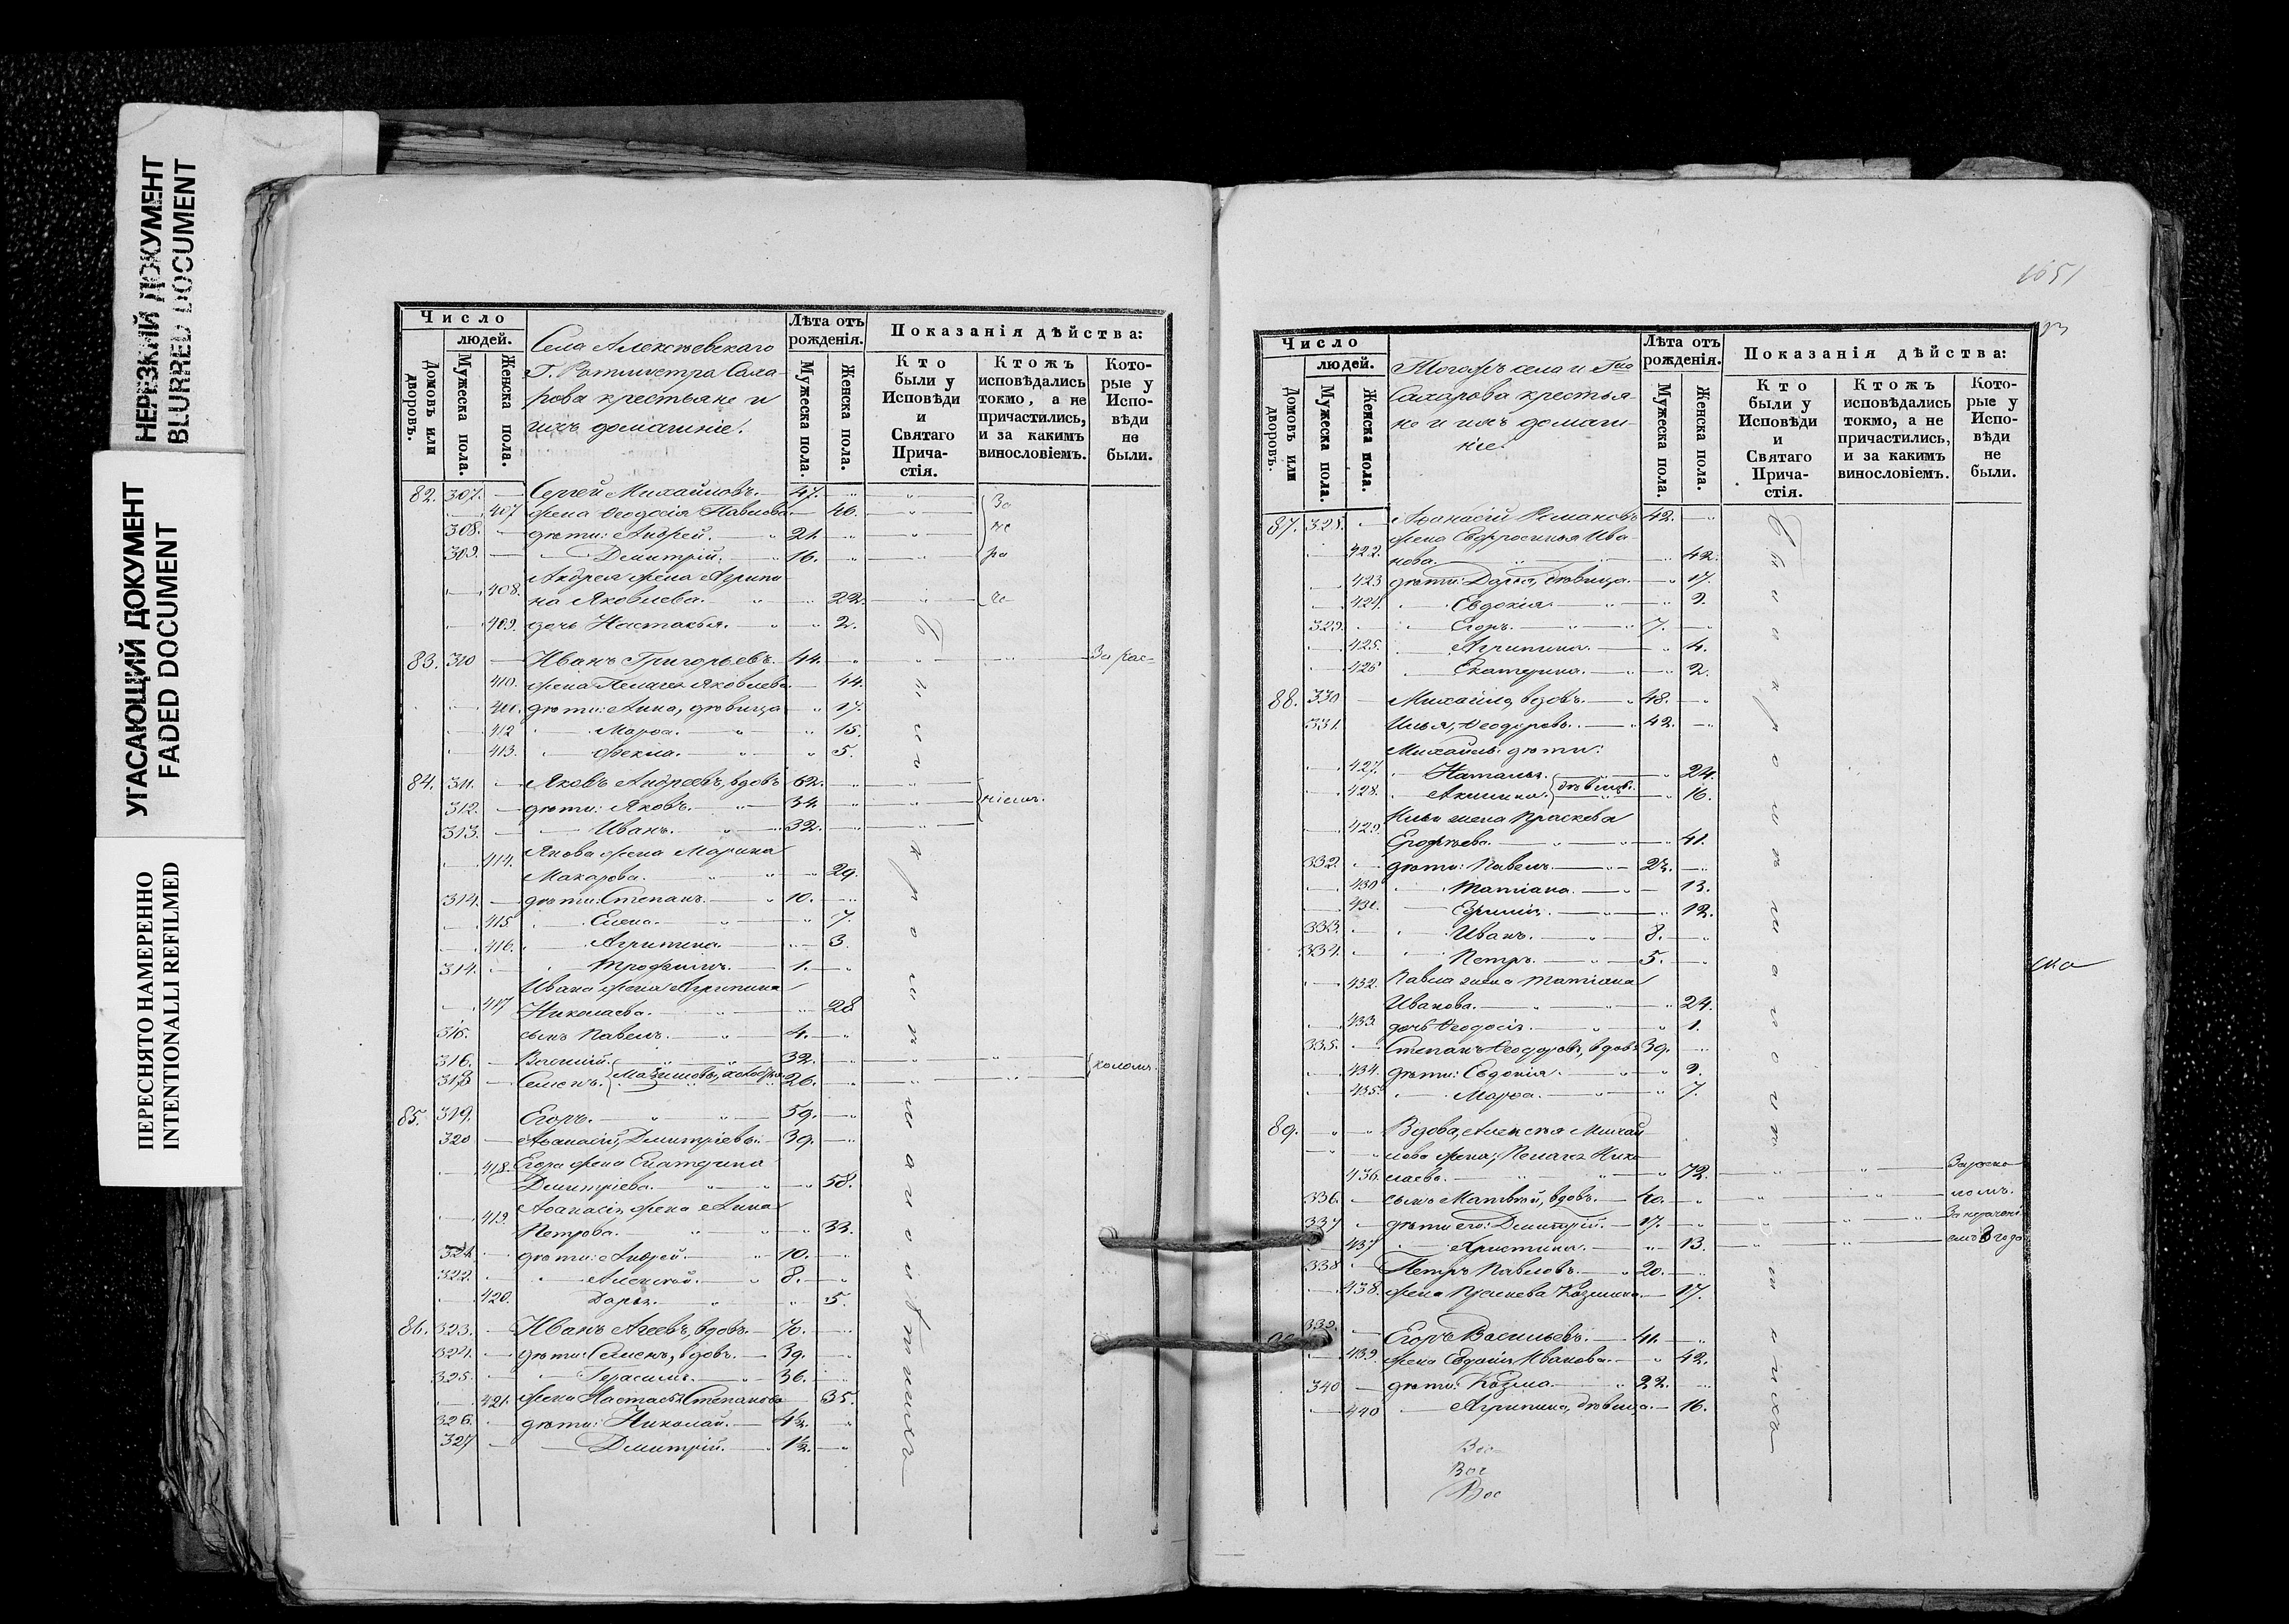 НЕРЕЗКИЙ ДОКУМЕНТ
BLURRED DOCUMENT
УГАСАЮЩИЙ ДОКУМЕНТ
FADED DOCUMENT
ПЕРЕСНЯТО НАМЕРЕННО
INTENTIONALLI REFILMED
Число
людей.
Домовъ или дворовъ.
Мужеска пола.
Женска пола.
Села Алексѣевскаго
Г. Ротмистра Саха-
рова крестьяне и
ихъ домашніе.
Лѣта отъ рожденія.
Мужеска пола.
Женска пола.
Показанія дѣйства:
Кто были у Исповѣди и Святаго Прича-стія.
Ктожъ исповѣдались токмо, а не причастились, и за какимъ винословіемъ.
Кото-рые у Испо-вѣди не были.
82. 307. Сергей Михайловъ. 47.
407 жена Ѳеодосія Павлова 46.
308. дѣти: Андрей. 21.
309. Димитрій. 16.
408. Андрея жена Агрипи
на Яковлева. 22.
409. дочь Настасья. 2.
83. 310 Иванъ Григорьевъ. 44.
410. жена Пелагея Яковлева 44.
411. дѣти: Анна, дѣвица 17.
412 Марѳа. 15.
413. Фекла. 5.
84. 311. Яковъ Андреевъ, вдовъ 62.
312. дѣти: Яковъ. 34
313. Иванъ. 32.
414. Якова жена Марина
Макарова. 29.
314. дѣти: Степанъ. 10.
415. Елена. 7.
416. Агрипина. 3.
314. Трофимъ. 1.
Ивана жена Агрипина
417 Николаева. 28
315. сынъ Павелъ. 4.
316. Василій. 32.
318 Семенъ. 26.
85. 319. Егоръ. 59.
320 Аѳанасій, Димитріевы. 39.
418. Егора жена Екатерина
Димитріева. 58.
419. Аѳанасія жена Анна
Петрова. 33.
321. дѣти: Андрей. 10.
322. Алексѣй. 8.
420. Дарья. 5.
86. 323. Иванъ Агеевъ, вдовъ. 70.
324. дѣти: Семенъ, вдовъ. 39.
325. Герасимъ. 36.
421. жена Настасья Степанова 35.
326. дѣти: Николай. 4½.
327 Димитрій. 1½.
1651
Число
людей.
Домовъ или дворовъ.
Мужеска пола.
Женска пола.
Тогожъ села и Гна
Сахарова крестья-
не и ихъ домаш-
ніе.
Лѣта отъ рожденія.
Мужеска пола.
Женска пола.
Показанія дѣйства:
Кто были у Исповѣди и Святаго Прича-стія.
Ктожъ исповѣдались токмо, а не причастились, и за какимъ винословіемъ.
Кото-рые у Испо-вѣди не были.
87. 328. Аѳанасій Романовъ 42.
жена Евфросинья Ива
422. нова. 42.
423 дѣти: Дарья, дѣвица. 17.
424. Евдокія. 9.
329. Егоръ. 7.
425. Агрипина. 4.
426 Екатерина. 2.
88. 330 Михайло, вдовъ. 48.
331 Илья, Ѳеодоровы. 42.
Михайлы дѣти:
427. Наталья. 24.
428. Акилина. дѣвицы. 16.
429. Ильи жена Праскева
41.
332. дѣти: Павелъ. 23.
430 Татіана. 13.
431. 12.
333. Иванъ. 8.
334. Петръ. 5.
432. Павла жена Татіана
Иванова. 24.
433. дочь Ѳеодосія. 1.
335. Степанъ Ѳеодоровъ, вдовъ 39.
434. дѣти: Евдокія. 9.
435. Марѳа. 7.
89. Вдова, Алексѣя Михай
лова жена, Пелагея Нико
436. лаева. 72.
336. сынъ Матвѣй, вдовъ. 40.
337 дѣти его: Димитрій. 17.
437 Христина. 13.
338 Петръ Павловъ. 20.
438. жена Праскева Козмина 17.
339. Егоръ Васильевъ. 41.
439. жена Евдокія Иванова. 42.
340 дѣти: Козма. 22.
440 Агрипина, дѣвица. 16.
Вос
Вос
Вос